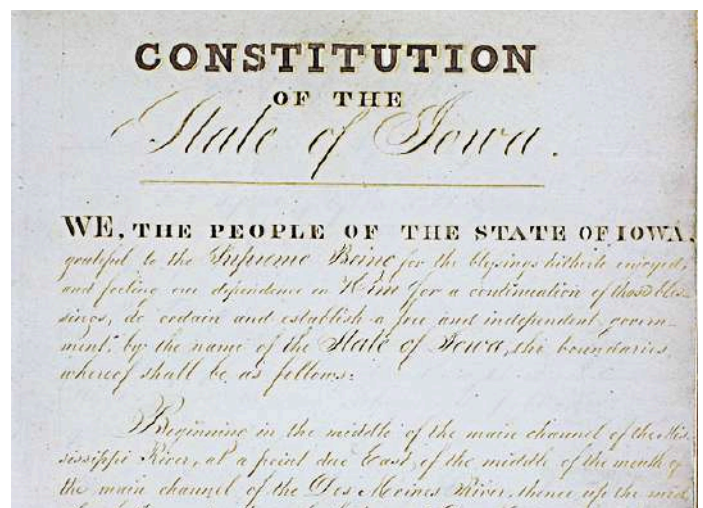 CONSTITUTION
OF THE
State of Iowa.
WE, THE PEOPLE OF THE STATE OF IOWA,
grateful to the Supreme Being for the blessings hitherto enjoyed,
and feeling our dependence on Him for a continuation of those bles-
sings, do ordain and establish a free and independent govern-
ment, by the name of the State of Iowa, the boundaries
whereof shall be as follows:
Beginning in the middle of the main channel of the Mis-
sissippi River, at a point due East of the middle of the mouth of
the main channel of the Des Moines River, thence up the mid